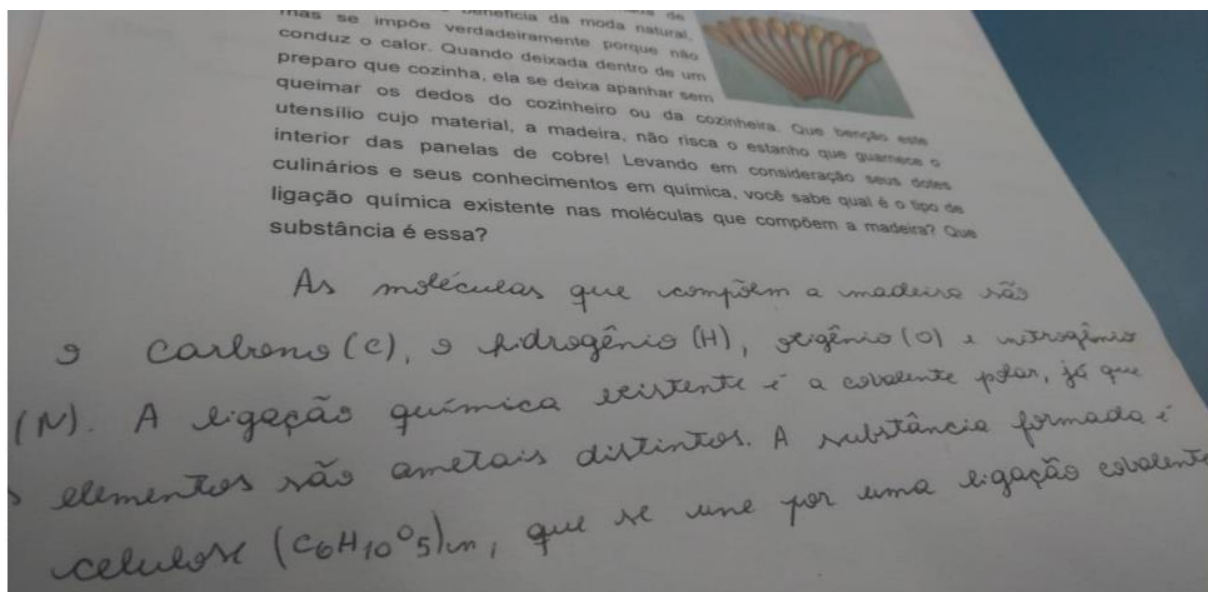 beneficia da moda natural,
mas se impõe verdadeiramente porque não
conduz o calor. Quando deixada dentro de um
preparo que cozinha, ela se deixa apanhar sem
queimar os dedos do cozinheiro ou da cozinheira. Que benção este
utensílio cujo material, a madeira, não risca o estanho que guarnece o
interior das panelas de cobre! Levando em consideração seus dotes
culinários e seus conhecimentos em química, você sabe qual é o tipo de
ligação química existente nas moléculas que compõem a madeira? Que
substância é essa?
As moléculas que compõem a madeira são
o carbono (C), o hidrogênio (H), oxigênio (O) e nitrogênio
(N). A ligação química existente é a covalente polar, já que
os elementos são ametais distintos. A substância formada é
celulose (C6H10O5)n, que se une por uma ligação covalente